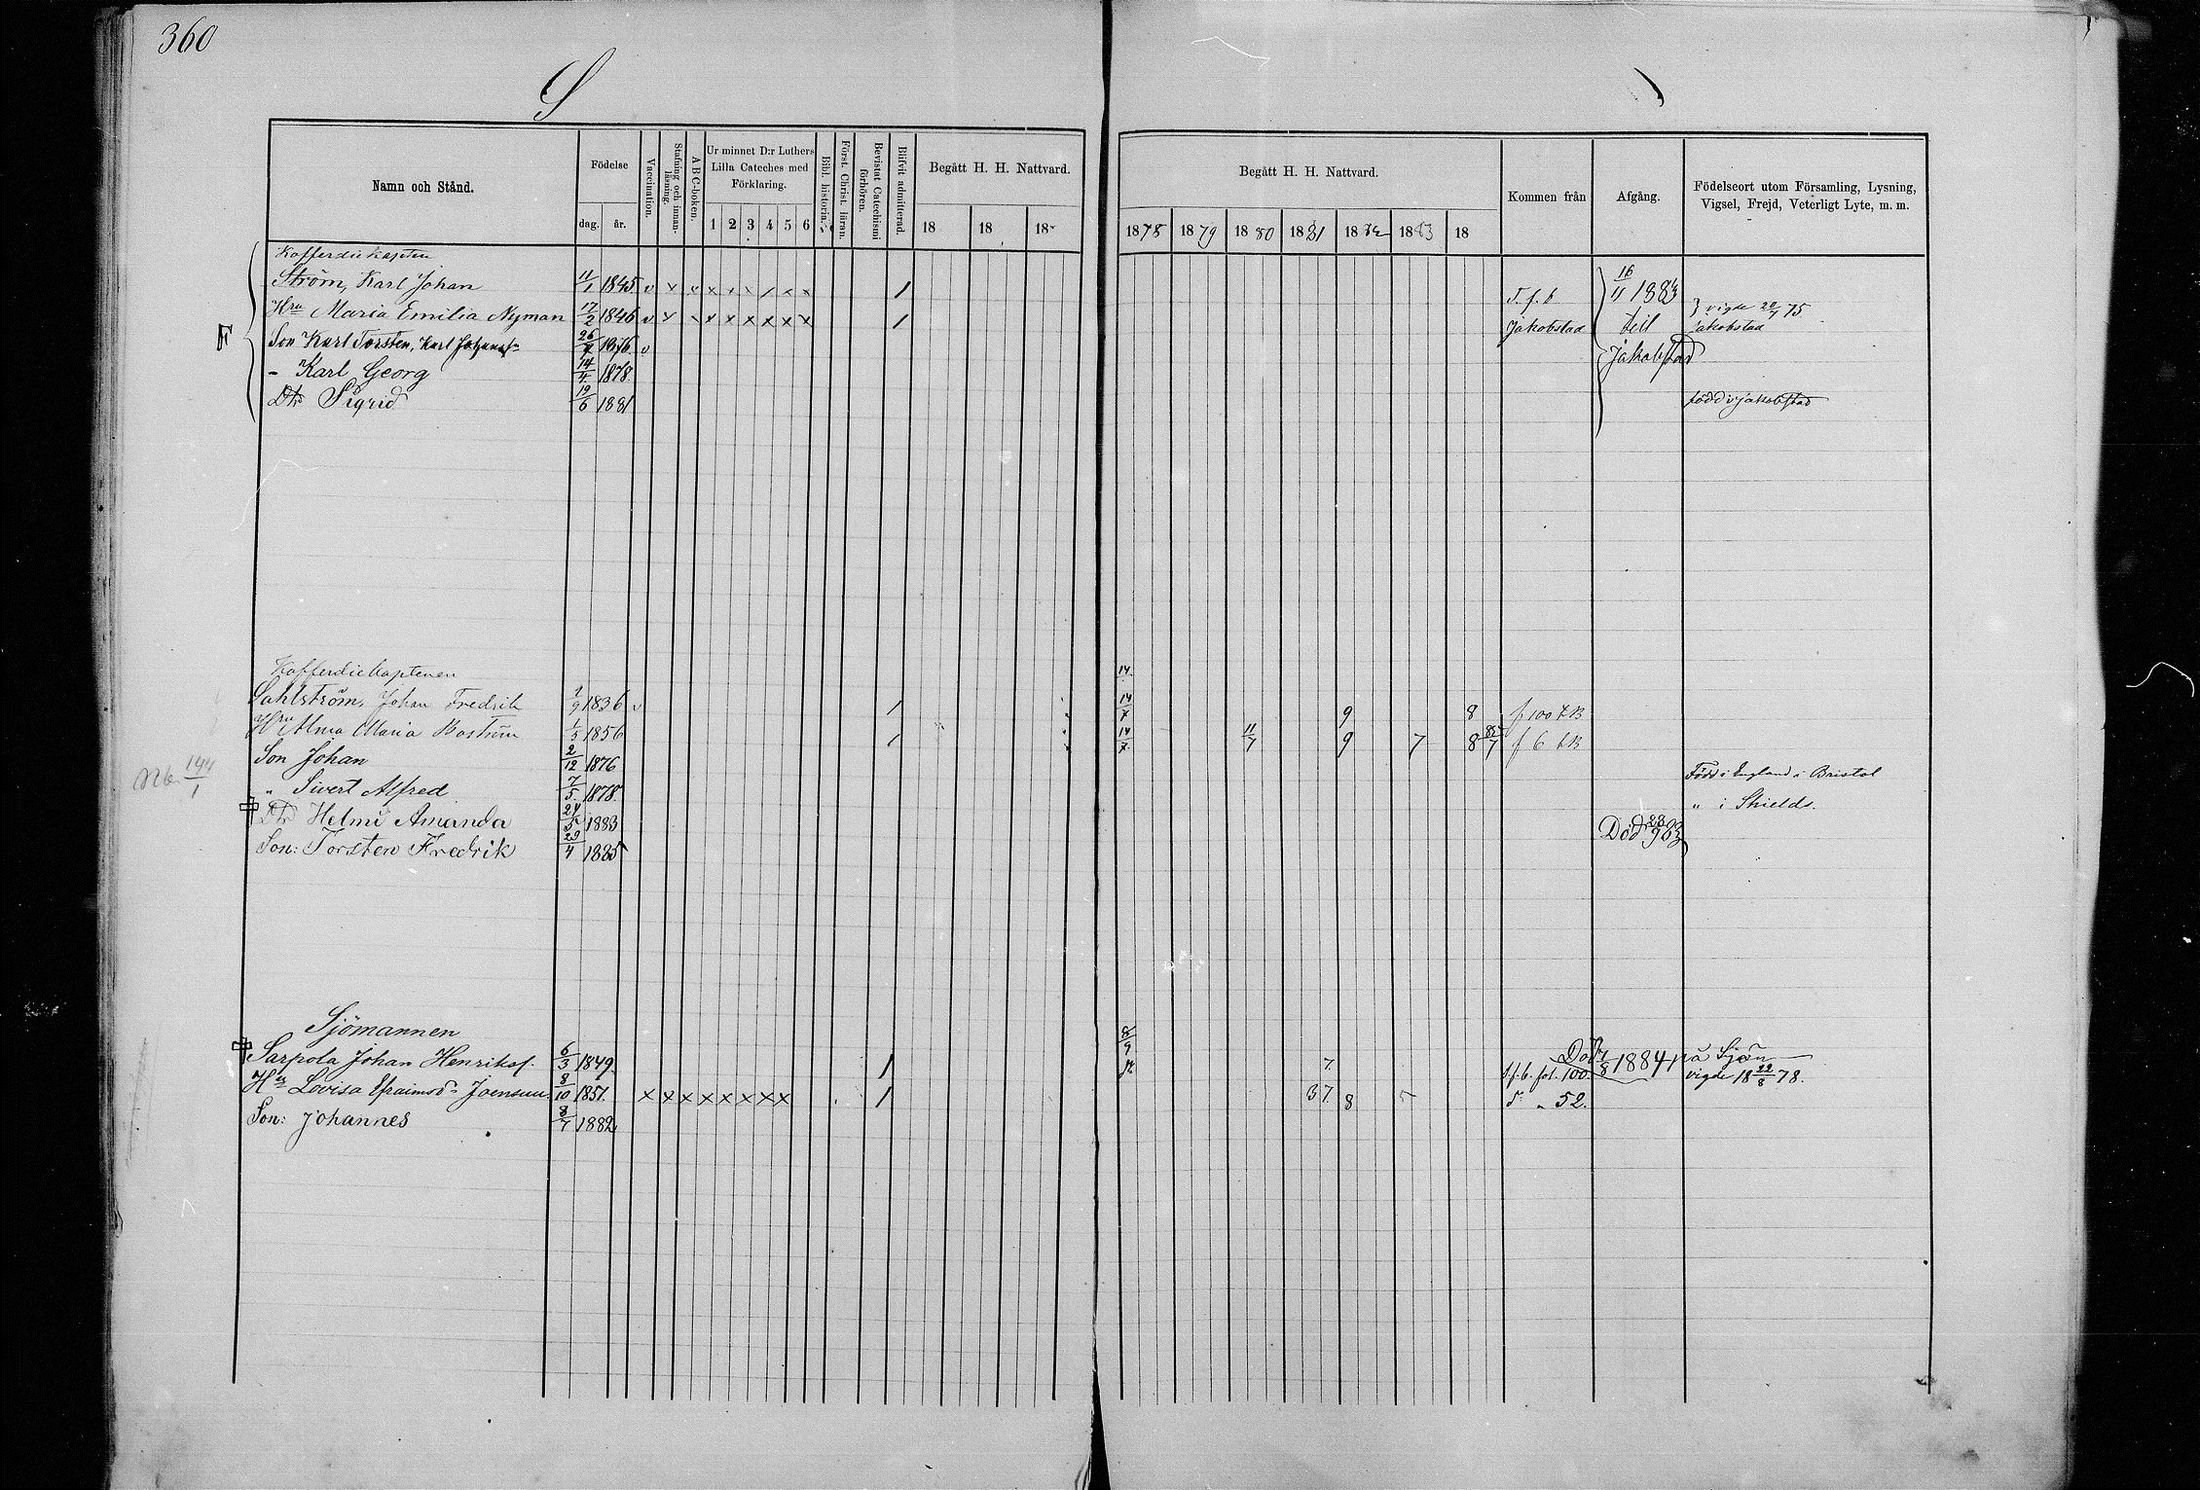 360
S
Namn och Stånd.
Födelse
dag. år.
Vaccination.
Stafning och innanläsning.
A B C-boken.
Ur minnet D:r Luthers Lilla Cateches med Förklaring.
1 2 3 4 5 6
Bibl. historia.
Först. Christ. läran.
Bevistat Catechismi förhören.
Blifvit admitterad.
Begått H. H. Nattvard.
18 18 18
Begått H. H. Nattvard.
1878 1879 1880 1881 1882 1883 18
Kommen från
Afgång.
Födelseort utom Församling, Lysning, Vigsel, Frejd, Veterligt Lyte, m. m.
Kofferdiekapten
Ström, Karl Johan 11/1 1845 v x v x x x / x x / 16/4 1883
Hru Maria Emilia Nyman 17/2 1846 v x x x x x x x / Jakobstad till vigde 75 Jakobstad
Son Karl Torsten, 26 1876 v Jakobstad
- Karl Georg 14/4 1878.
Dtr Sigrid 19/6 1881 född i Jakobstad
Kofferdiekaptenen 14
Sahlström, Johan Fredrik 1836 v / 14/7 9 8 f 100 KB
Hru Alma Maria Boström 1/5 1856 / 14/7 11/7 9 7 8 f 6 KB
Son Johan 2/12 1876 Född i England i Bristol
Nb 144/1
" Sivert Alfred 7/5 1878. " i Shields.
Dtr Helmi Amanda 24/5 1883 Död 28/9 83
Son: Torsten Fredrik 29/4 1885
Sjömannen 8/9
Sarpola Johan Henriksf. 6/3 1849 / 7. fol. 100. Död 1884 på Sjön
vigde 18 22/8 78.
Hu Lovisa Efraimsdr Joensuu 8/10 1851. x x x x x x x x / 37 8 " 52.
Son: Johannes 8/7 1882